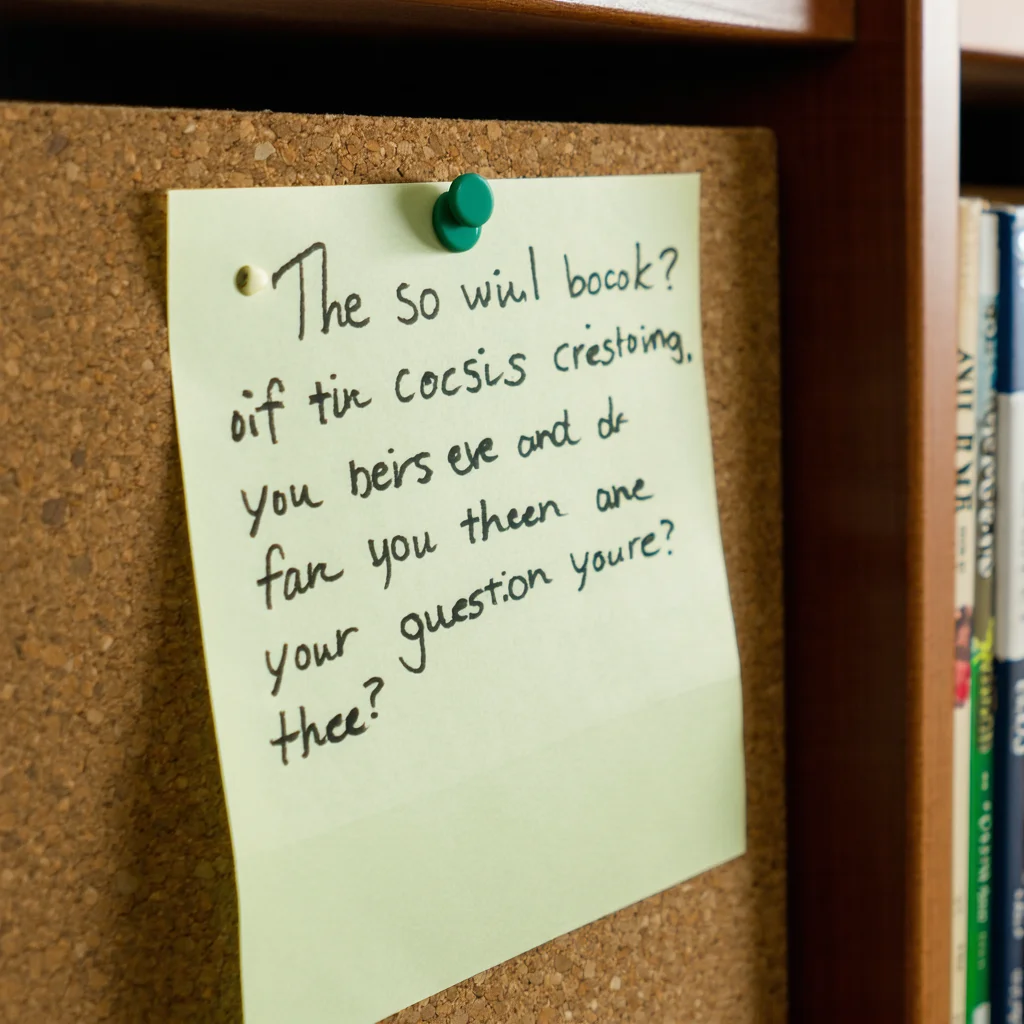 The so wiul bocok?
oif tin cocsis crestoing.
you beirs eve and de
fan you theen ane
your question youre?
thee?